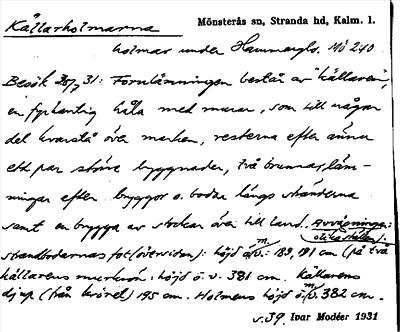 Källarholmarna
Mönsterås sn, Stranda hd, Kalm. l.
holmar under Hammarglo. Mö 240
Besök 20/7 31: Fornlämningen består av "källaren",
en fyrkantig håla med murar, som till någon
del kvarstå över marken, resterna efter ännu
ett par större byggnader, två brunnar, läm-
ningar efter bryggor o. bodar längs stränderna
samt en brygga av stockar över till land. Avvägningar:
olika ställen):
strandbodarnas fot (överytan): höjd ö/v: 183, 191 cm (på två
m
källarens murkrön: höjd ö. v. 381 cm. Källarens
djup (från krönet) 195 cm. Holmens höjd ö. v. 382 cm.
m
s. 39. Ivar Modéer 1931